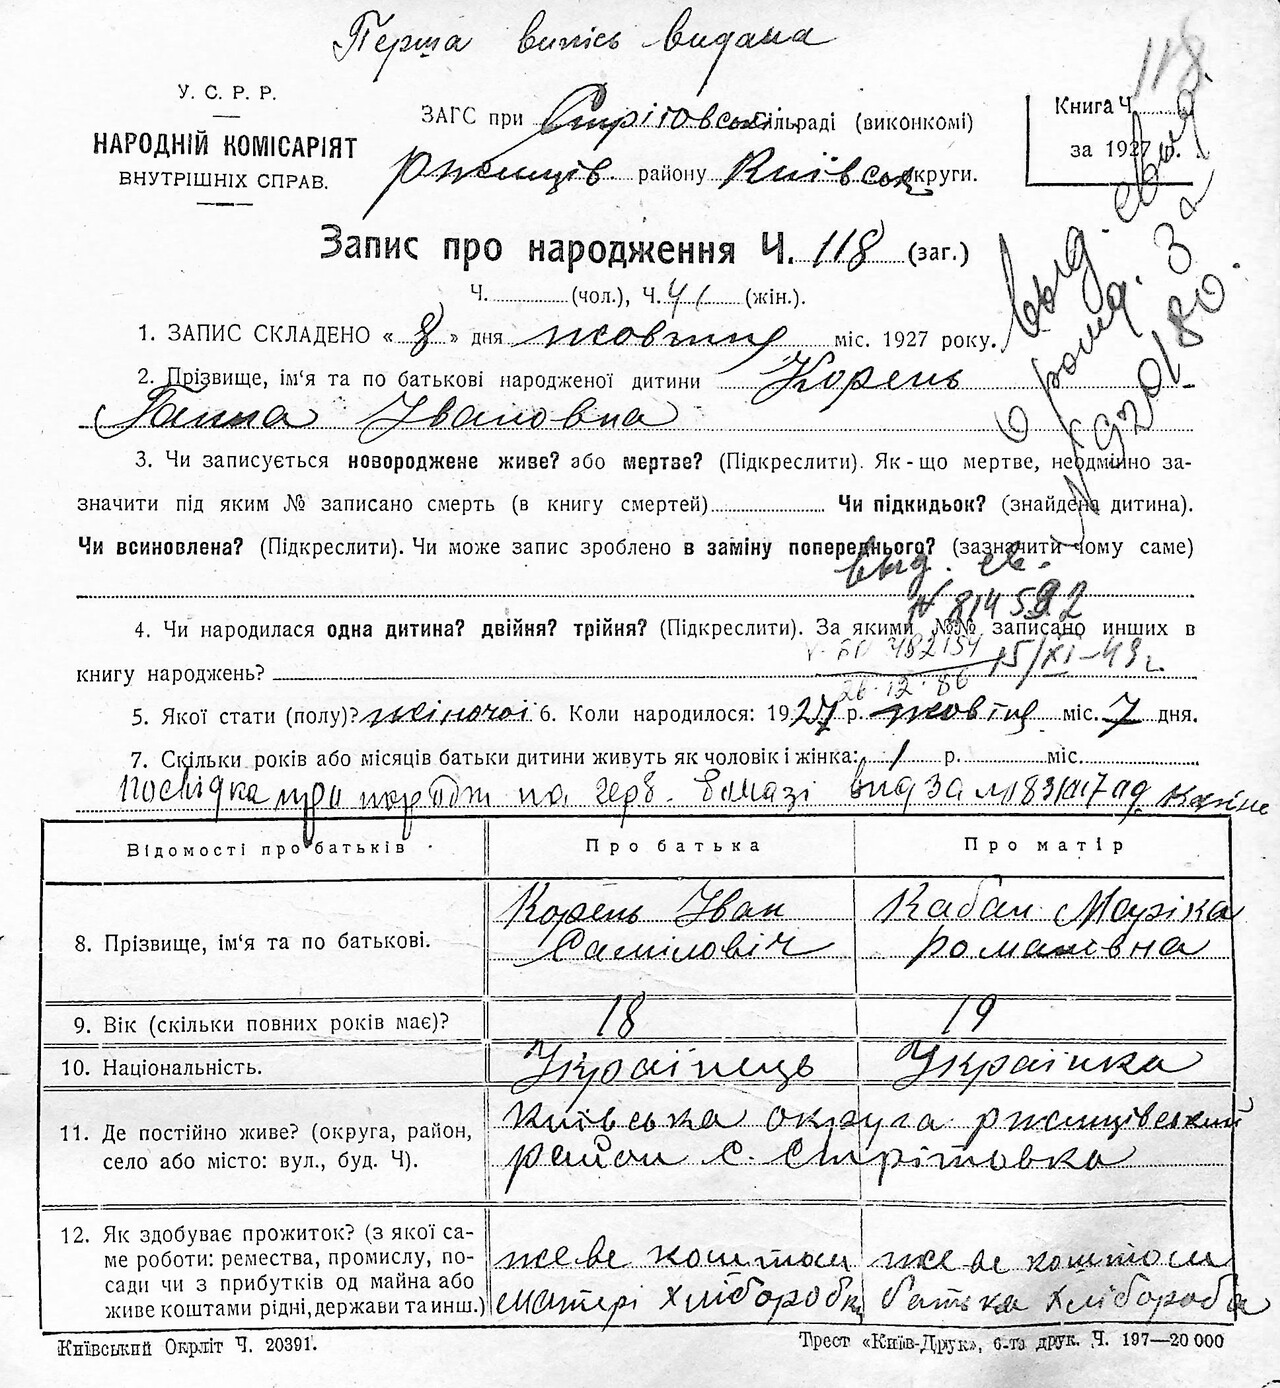 Перша випись видана
118
У. С. Р. Р.
НАРОДНІЙ КОМІСАРІЯТ
ВНУТРІШНІХ СПРАВ.
ЗАГС при Стрітовській сільраді (виконкомі)
Ржищів. району Київськ округи.
Книга Ч.
за 1927 р.
Запис про народження Ч. 118 (заг.)
Ч. (чол.), Ч. 41 (жін.).
выд. свид.
о рожд. за
№ 920180.
1. ЗАПИС СКЛАДЕНО « 8 » дня жовтня міс. 1927 року.
2. Прізвище, ім'я та по батькові народженої дитини Корень
Ганна Івановна
3. Чи записується новороджене живе? або мертве? (Підкреслити). Як-що мертве, неодмінно за-
значити під яким № записано смерть (в книгу смертей) Чи підкидьок? (знайдена дитина).
Чи всиновлена? (Підкреслити). Чи може запис зроблено в заміну попереднього? (зазначити чому саме)
выд. св.
N 814592
4. Чи народилася одна дитина? двійня? трійня? (Підкреслити). За якими №№ записано инших в
482154 15/XI-49 г.
книгу народжень?
26.12.86
5. Якої стати (полу)? жіночої 6. Коли народилося: 1927 р. жовтня міс. 7 дня.
7. Скільки років або місяців батьки дитини живуть як чоловік і жінка: 1 р. міс.
Посвідка про народж на герб. бомазі вид за
Відомості про батьків
Про батька
Про матір
8. Прізвище, ім'я та по батькові.
Корень Іван
Самілович
Кабан Маріка
Романовна
9. Вік (скільки повних років має)?
18
19
10. Національність.
Українець
Українка
11. Де постійно живе? (округа, район,
село або місто: вул., буд. Ч).
Київська округа Ржищівський
район с. Стрітовка
12. Як здобуває прожиток? (з якої са-
ме роботи: ремества, промислу, по-
сади чи з прибутків од майна або
живе коштами рідні, держави та инш.)
живе коштом
матері хліборобки
живе коштом
батька хлібороба
Київський Окрліт Ч. 20391.
Трест «Київ-Друк», 6-та друк. Ч. 197—20 000